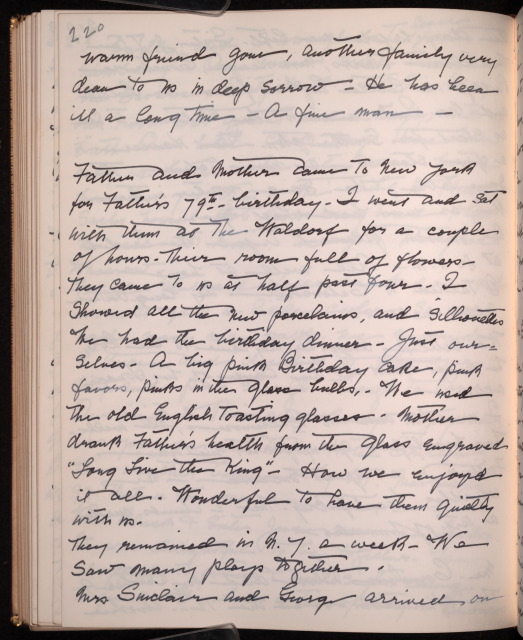 220
warm friend gone, another family very
dear to us in deep sorrow - He has been
ill a long time - A fine man -
Father and Mother came to New York
for Father's 79th - birthday - I went and sat
with them at the Waldorf for a couple
of hours - their room full of flowers -
They came to us at half past four - I
showed all the new porcelains, and silhouettes
We had the birthday dinner - Just our=
selves - A big pink Birthday Cake, pink
favors, pinks in the glass bulbs, - We used
the old English toasting glasses - Mother
drank Father's health from the glass engraved
"Long Live the King" - How we enjoyed
it all - Wonderful to have them quietly
with us -
They remained in N.Y. a week - We
saw many plays together .
Mrs Sinclair and George arrived on